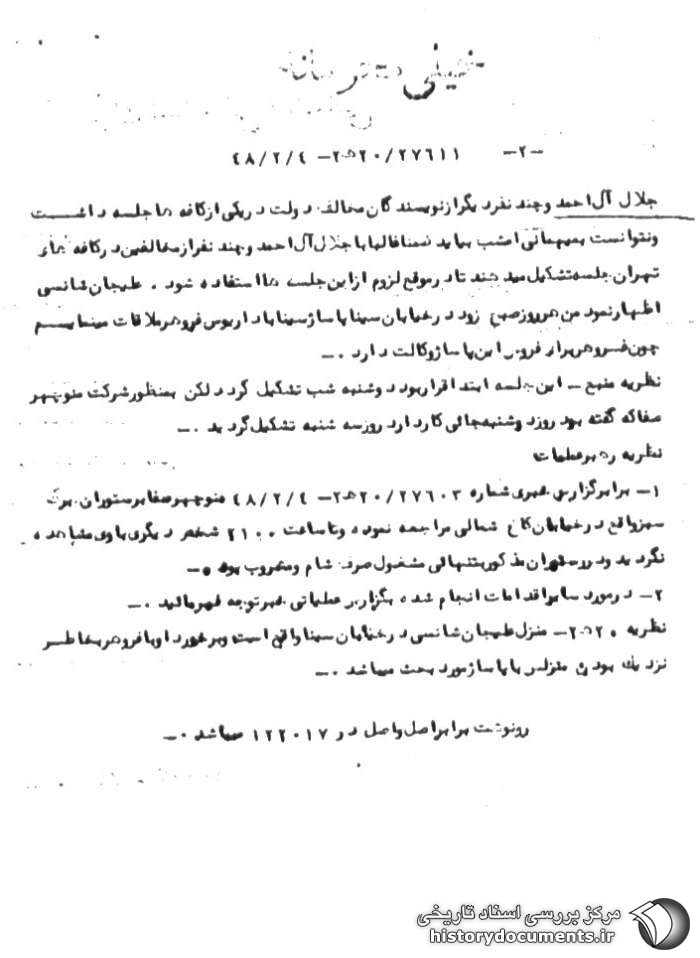 خیلی محرمانه
-۲- ۲۷۶۱۱/۲۰ﻫ۲- ۴۸/۲/۴
جلال آل احمد و چند نفر دیگر از نویسندگان مخالف دولت در یکی از کافه ها جلسه داشت
و نتوانست بمیهمانی امشب بیاید ضمنا غالبا با جلال آل احمد و چند نفر از مخالفین در کافه های
تهران جلسه تشکیل میدهند تا در موقع لزوم از این جلسه ها استفاده شود . علیجان شانسی
اظهار نمود من هر روز صبح زود در خیابان سینا پاساژ سینا با داریوش فروهر ملاقات مینمایم
چون فروهر برادر در این پاساژ وکالت دارد .-
نظریه منبع - این جلسه ابتدا قرار بود دوشنبه شب تشکیل گردد لکن بمنظور شرکت منوچهر
صفا که گفته بود روز دوشنبه جائی کار دارد روز سه شنبه تشکیل گردید .-
نظریه رهبر عملیات
۱- برابر گزارش خبری شماره ۲۷۶۰۳/۲۰ﻫ۲- ۴۸/۲/۴ منوچهر صفا برستوران برگ
سبز واقع در خیابان کاخ شمالی مراجعه نموده و تا ساعت ۲۱۰۰ شخص دیگری با وی مشاهده
نگردید و در رستوران مذکور بتنهائی مشغول صرف شام و مشروب بود .-
۲- در مورد سایر اقدامات انجام شده بگزارش عملیاتی خبر توجه فرمائید .-
نظریه ۲۰ﻫ۲- منزل علیجان شانسی در خیابان سینا واقع است و برخورد او با فروهر بخاطر
نزدیک بودن منزلش با پاساژ مورد بحث میباشد .-
رونوشت برابر اصل واصل در ۱۲۲۰۱۷ میباشد .-
مرکز بررسی اسناد تاریخی
historydocuments.ir